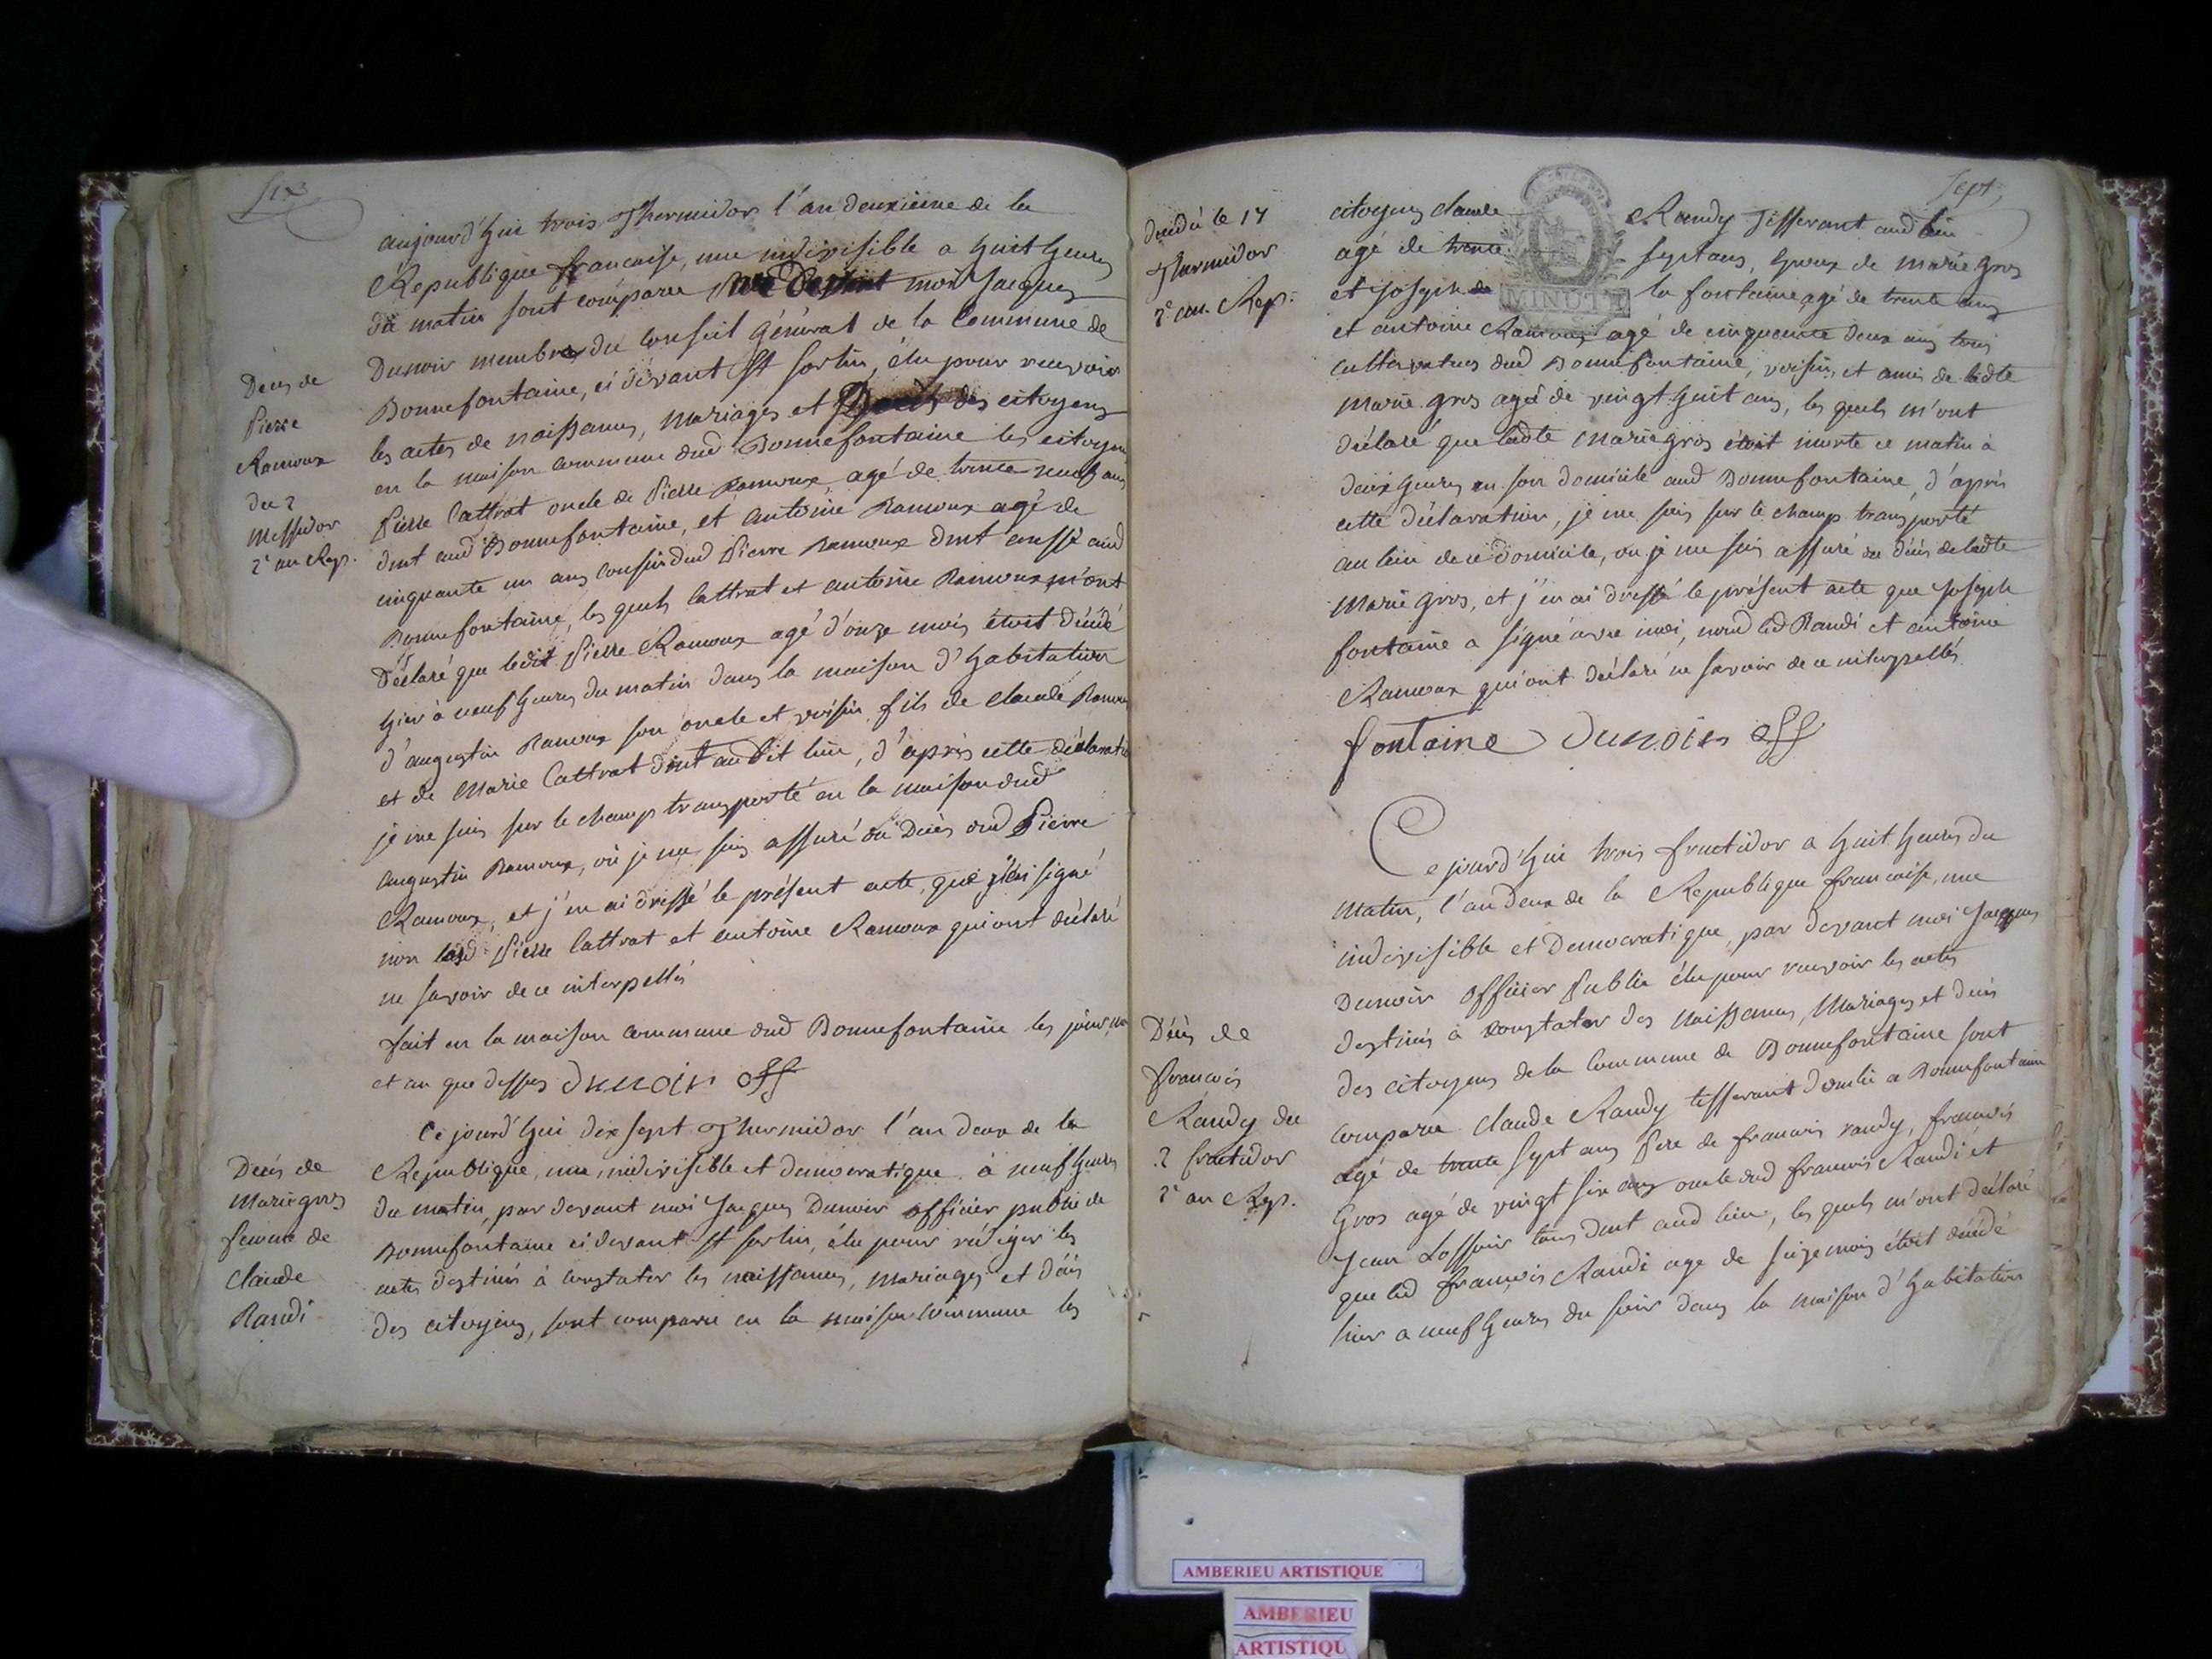 six
aujourd'hui trois Thermidor l'an deuxieme de la
République francaise, une indivisible a huit heures
du matin sont comparu moi Jacques
Dunoir membre du conseil général de la Commune de
Bonnefontaine, ci devant St sorlin, élu pour recevoir
les actes de naissances, mariages et Décès des citoyens
en la maison commune dud Bonnefontaine les citoyens
Pierre Cattrat oncle de Pierre Ramoux, agé de trente neuf ans
dmt aud Bonnefontaine, et antoine Ramoux agé de
cinquante un ans cousin dud Pierre Ramoux dmt aussi aud
Bonnefontaine, les quels Cattrat et antoine Ramoux m'ont
Déclaré que ledit Pierre Ramoux agé d'onze mois étoit décédé
hier à neuf heures du matin dans la maison d'habitation
d'augustin Ramoux son oncle et voisin fils de claude Ramoux
et de Marie Cattrat dmt audit lieu, d'après cette déclaration
je me suis sur le champ transporté en la maison dud
augustin Ramoux, où je me suis assuré du Décès dud Pierre
Ramoux, et j'en ai dressé le présent acte, que j'ai signé
non lesd Pierre Cattrat et antoine Ramoux qui ont déclaré
ne savoir de ce interpellés
fait en la maison commune dud Bonnefontaine les jour, mois
et an que dessus dunoir off
Décès de
Pierre
Ramoux
du 2
Messidor
2e an Rep.
Ce jourd'hui dix sept Thermidor l'an deux de la
République, une, indivisible et democratique à neuf heures
du matin, par devant moi Jacques Dunoir officier public de
Bonnefontaine ci devant St sorlin, élu pour rédiger les
actes destinés à constater les naissances, mariages et décès
des citoyens, sont comparu en la maison commune les
Decès de
Marie gros
femme de
Claude
Randi
sept,
décédé le 17
Thermidor
2e an. Rep.
citoyens claude Randy Tisserant aud lieu
agé de trente septans, époux de marie gros
et joseph la fontaine agé de trente ans
et antoine Ramoux agé de cinquante deux ans tous
cultivateurs dud Bonnefontaine, voisins et amis de ladte
Marie gros agée de vingt huit ans, les quels m'ont
déclaré que ladte Marie gros étoit morte ce matin à
deux heures en son domicile aud Bonnefontaine, d'après
cette déclaration, je me suis sur le champ transporté
au lieu de ce domicile, ou je me suis assuré du décès de ladte
Marie gros, et j'en ai dressé le présent acte que joseph
fontaine a signé avec moi, non led Randi et antoine
Ramoux qui ont déclaré ne savoir de ce interpellés
fontaine Dunoir off
Ce jourd'hui trois fructidor a huit heures du
matin, l'an deux de la République francaise, une
indivisible et Democratique, par devant moi Jacques
Dunoir officier Public élu pour recevoir les actes
destinés à constater des Naissances, Mariages et decès
des citoyens de la Commune de Bonnefontaine sont
comparu Claude Randy tisserant domlié a Bonnefontaine
agé de trente sept ans Pere de francois randy, francois
Gros agé de vingt six ans oncle dud francois Randi et
Jean tous dmt aud lieu, les quels m'ont déclaré
que led francois Randi age de seize mois étoit décédé
hier a neuf heures du soir dans la maison d'habitation
Décès de
francois
Randy du
2 fructidor
2e an Rep.
MINUTE
AMBERIEU ARTISTIQUE
AMBERIEU
ARTISTIQU